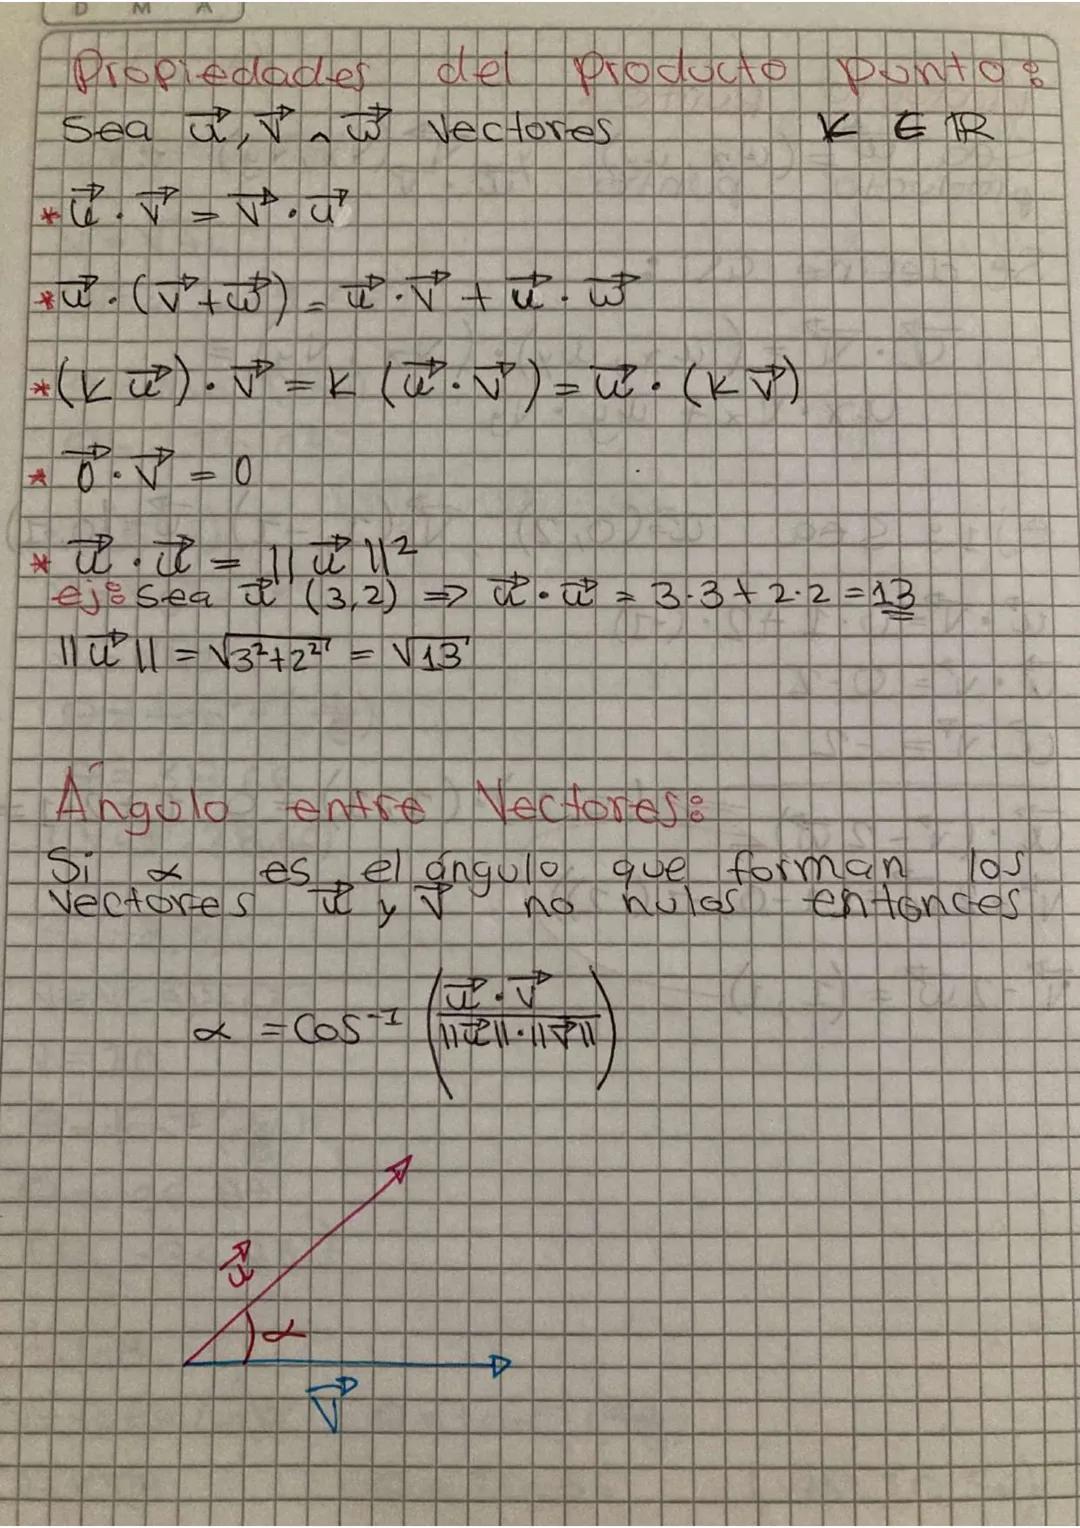 D M A
Propiedades del producto punto:
Sea u⃗, v⃗ ∧ w⃗ vectores K ∈ ℝ
* u⃗ · v⃗ = v⃗ · u⃗
* u⃗ · (v⃗ + w⃗) = u⃗ · v⃗ + u⃗ · w⃗
* (K u⃗) · v⃗ = K (u⃗ · v⃗) = u⃗ · (K v⃗)
* 0⃗ · v⃗ = 0
* u⃗ · u⃗ = ||u⃗||²
ej: Sea u⃗ (3,2) ⇒ u⃗ · u⃗ = 3·3 + 2·2 = 13
||u⃗|| = √3²+2² = √13
Ángulo entre Vectores:
Si α es el ángulo que forman los
vectores u⃗ y v⃗ no nulos entonces
u⃗ · v⃗
α = cos⁻¹ (
||u⃗|| · ||v⃗||
)
u⃗
α
v⃗